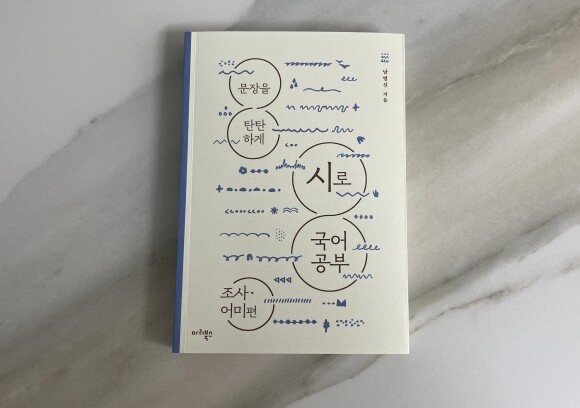 문장을
탄탄
하게
시로
국어
공부
조사·
어미편
남영신 지음
마리북스